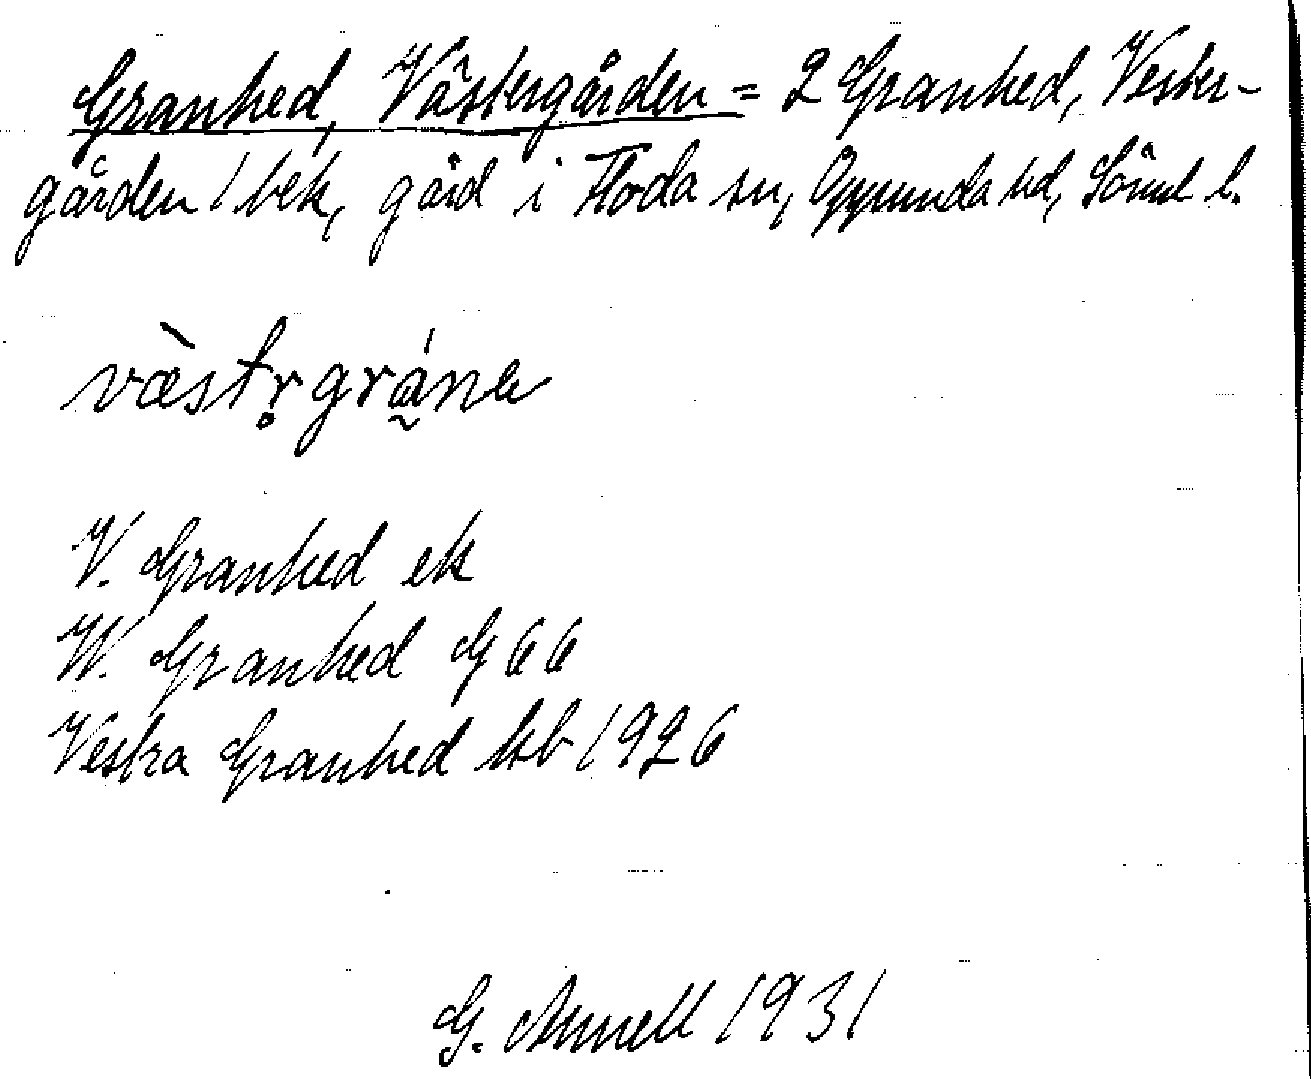 Granhed, Västergården = 2 Granhed, Vester-
gården / bek, gård i Floda sn, Oppunda hd, Söml l.
væ̀str̥grána
V. Granhed ek
W. Granhed G 66
Vestra Granhed hb 1926
G. Arnell 1931